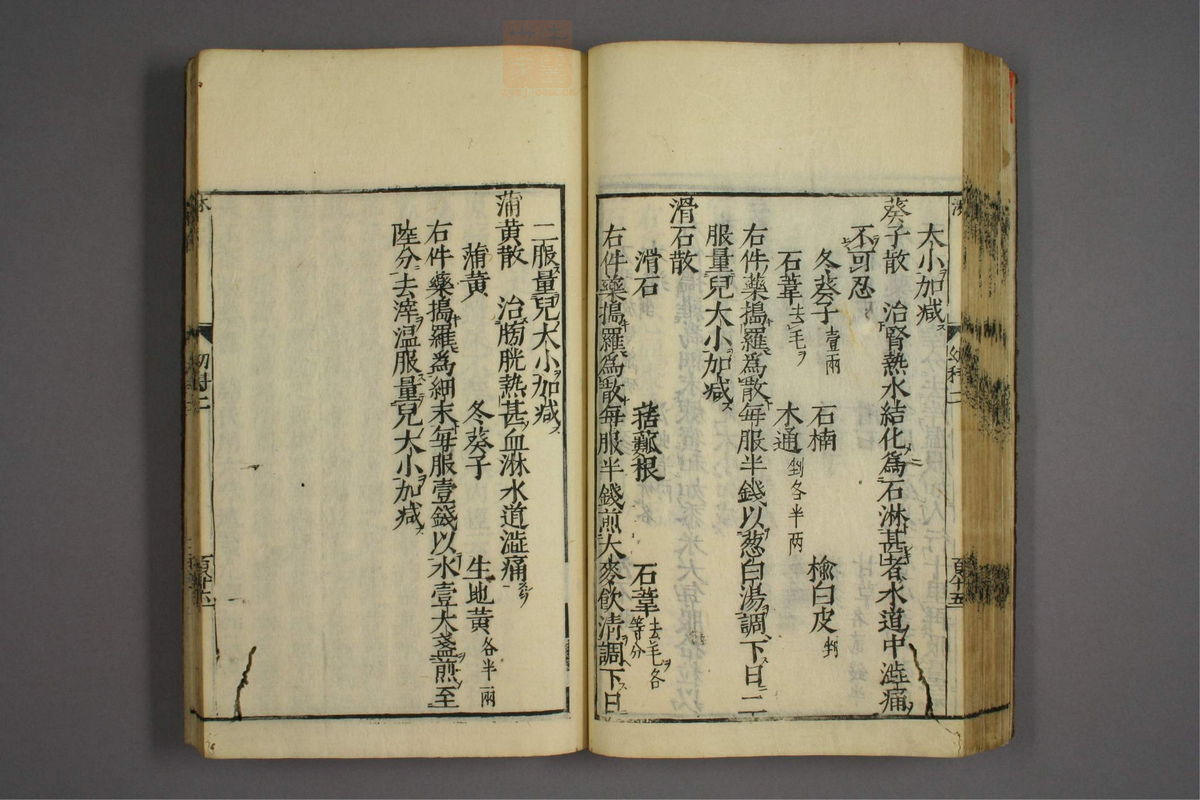 太小加减
葵子散 治腎熱水結化爲石淋甚者水道中澁痛
不可忍
冬葵子壹兩 石楠 楡白皮剉
石葦去毛 木通剉各半兩
右件藥搗羅爲散每服半錢以葱白湯調下日二
服量兒大小加减
滑石散
滑石 栝蔞根 石葦去毛各等分
右件藥搗羅爲散每服半錢煎大麥飲清調下日
二服量兒大小加减
蒲黄散 治膀胱熱甚血淋水道澁痛
蒲黄 冬葵子 生地黄各半兩
右件藥搗羅爲細末每服壹錢以水壹大盞煎至
陸分去滓温服量兒大小加减
幼科二